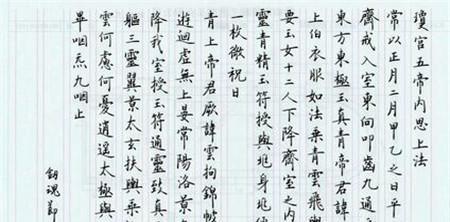 瓊宮五帝內思上法
常以正月二月甲乙之日平
齋戒入室東向叩齒九通
東方東極玉真青帝君諱
上伯衣服如法乘青雲飛
要玉女十二人下降齋室之內
靈青精玉符授與兆身兆
一枚微祝曰
青上帝君厥諱雲拘錦帔
遊迴虛無上晏常陽洛景
降我室授玉符通靈致真
軀三靈翼景太玄扶輿乘
雲何慮何憂逍遙太極與
畢咽炁九咽止
魂節